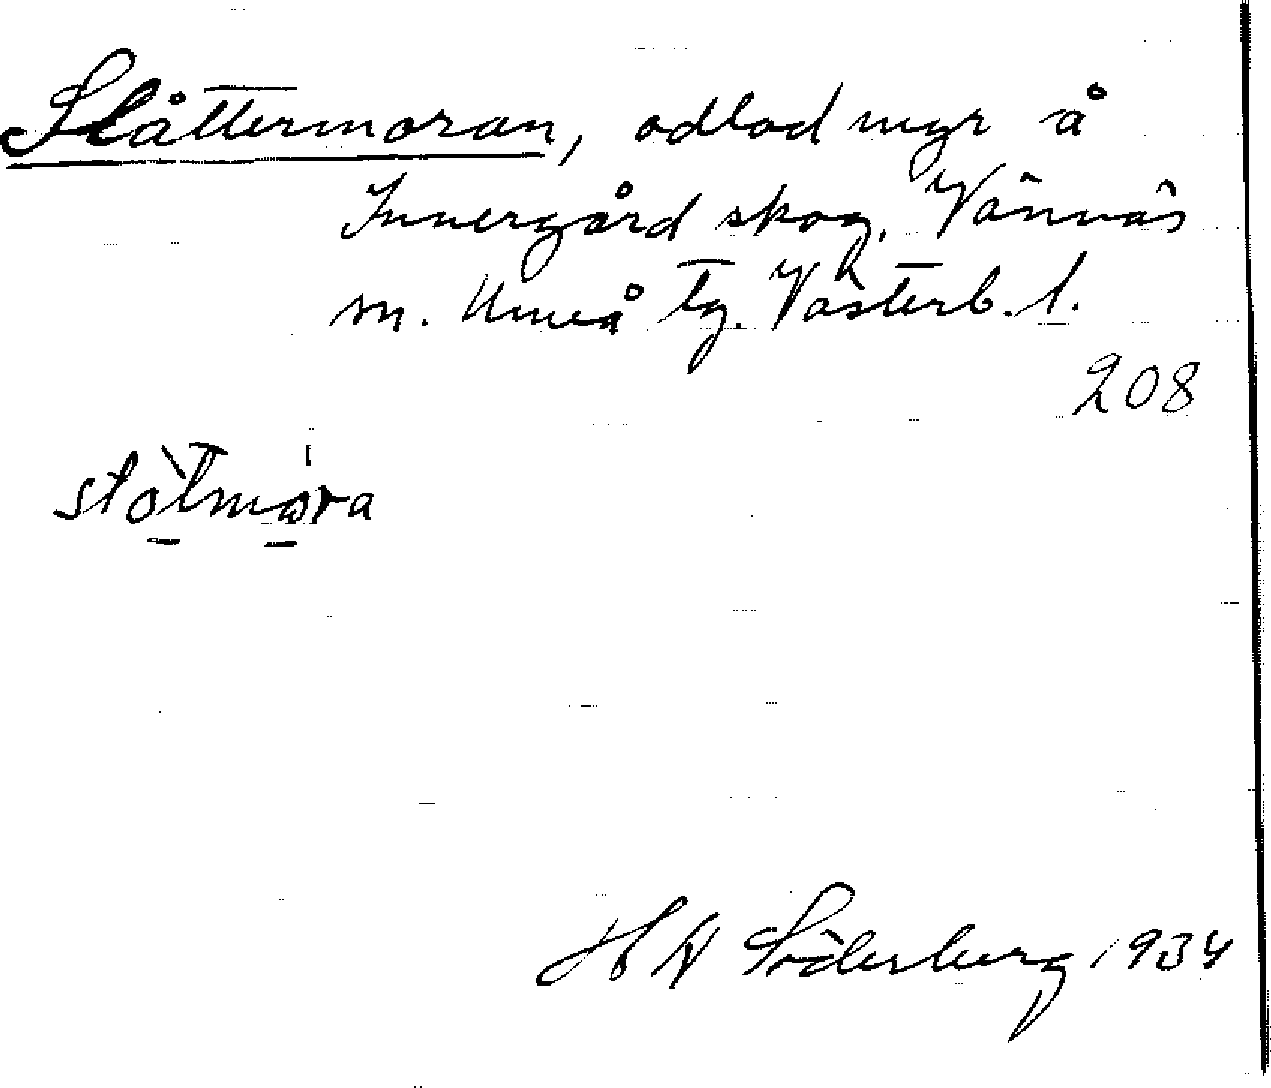 Slåttermoran, odlad myr å
Innergård skog, Vännäs
sn. Umeå tg. Västerb. l.
208
stòtmora
H N Söderberg 1934